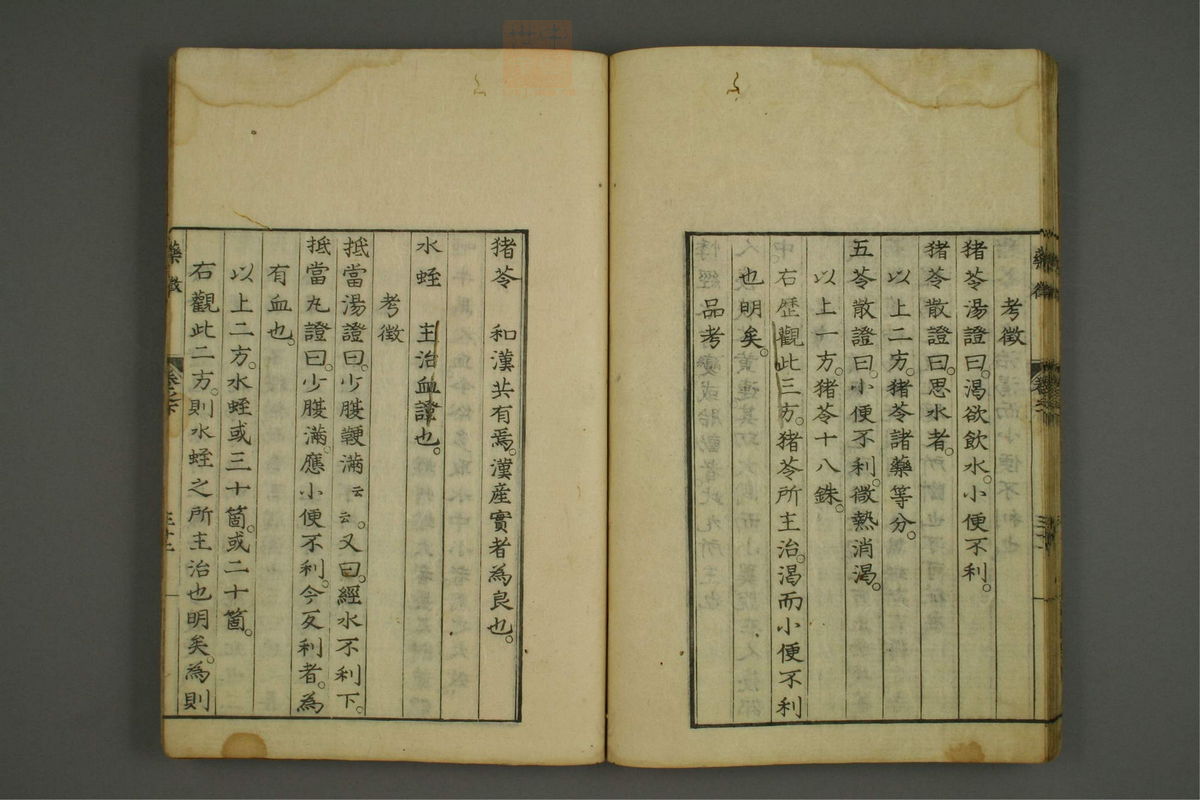 考徵
猪苓湯證曰。渴欲飲水。小便不利。
猪苓散證曰。思水者。
以上二方。猪苓諸藥等分。
五苓散證曰。小便不利。微熱消渴。
以上一方。猪苓十八銖。
右歷觀此三方。猪苓所主治。渴而小便不利
也明矣。
品考
猪苓 和漢共有焉。漢產實者為良也。
水蛭 主治血證也。
考徵
抵當湯證曰。少腹鞕滿云云。又曰。經水不利下。
抵當丸證曰。少腹滿。應小便不利。今反利者。為
有血也。
以上二方。水蛭或三十箇。或二十箇。
右觀此二方。則水蛭之所主治也明矣。為則
藥徵